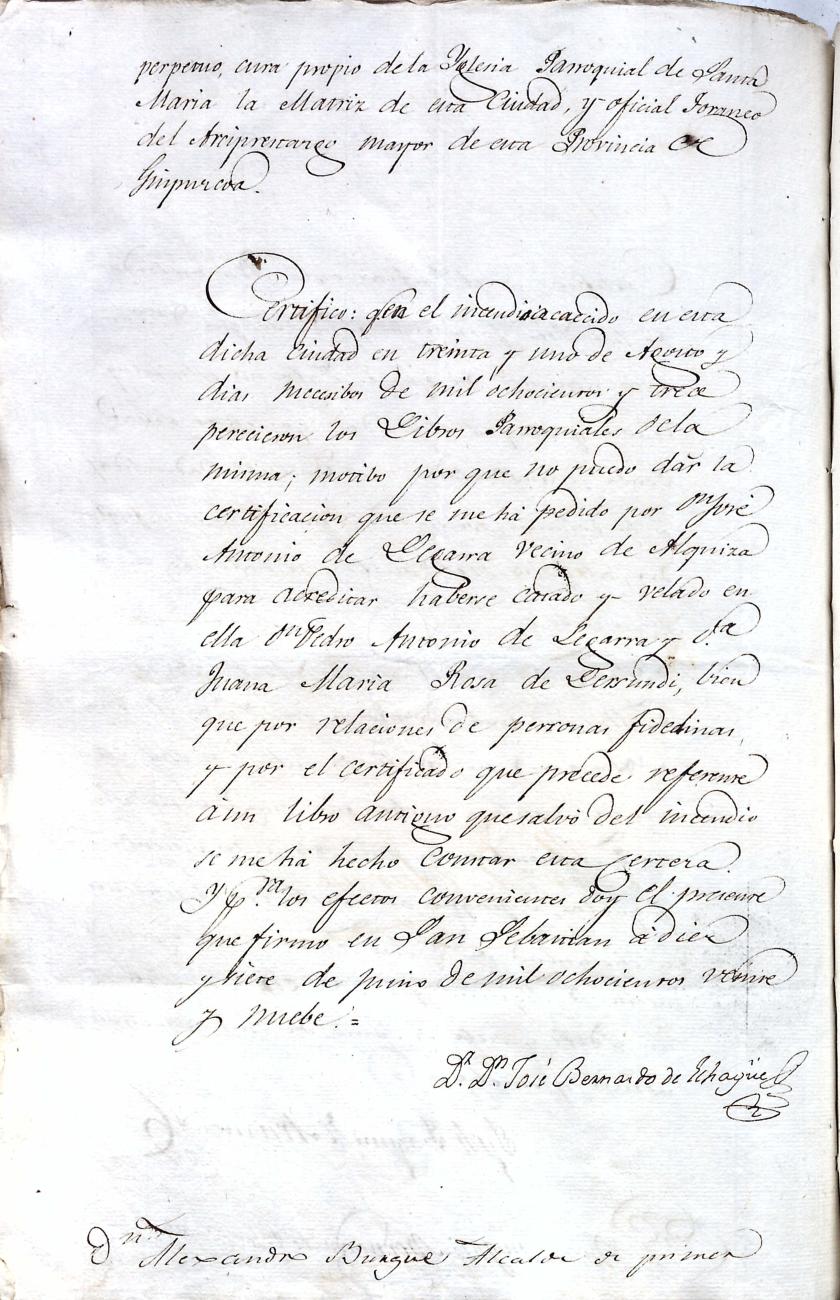 perpetuo, cura propio de la Yglesia Parroquial de Santa
Maria la Matriz de esta Ciudad, y oficial foraneo
del Arciprestazgo mayor de esta Provincia de
Guipuzcoa.
Certifico: q.e en el incendio acaecido en esta
dicha Ciudad en treinta y uno de Agosto y
dias succesibos de mil ochocientos y trece
perecieron los Libros Parroquiales de la
misma; motibo por que no puedo dár la
certificacion que se me há pedido por D.n José
Antonio de Legarra vecino de Alquiza
para acreditar haberse casado y velado en
ella D.n Pedro Antonio de Legarra y D.a
Juana Maria Rosa de Lersundi, bien
que por relaciones de personas fidedinas,
y por el certificado que precede referente
á un libro antiguo que salvó del incendio
se me há hecho constar esta certeza.
Y p.ra los efectos convenientes doy el presente
que firmo en San Sebastian á diez
y siete de junio de mil ochocientos veinte
y nuebe.=
D.r D.n José Bernardo de Echagüe
D.n Alexandro Burgue Alcalde de primer